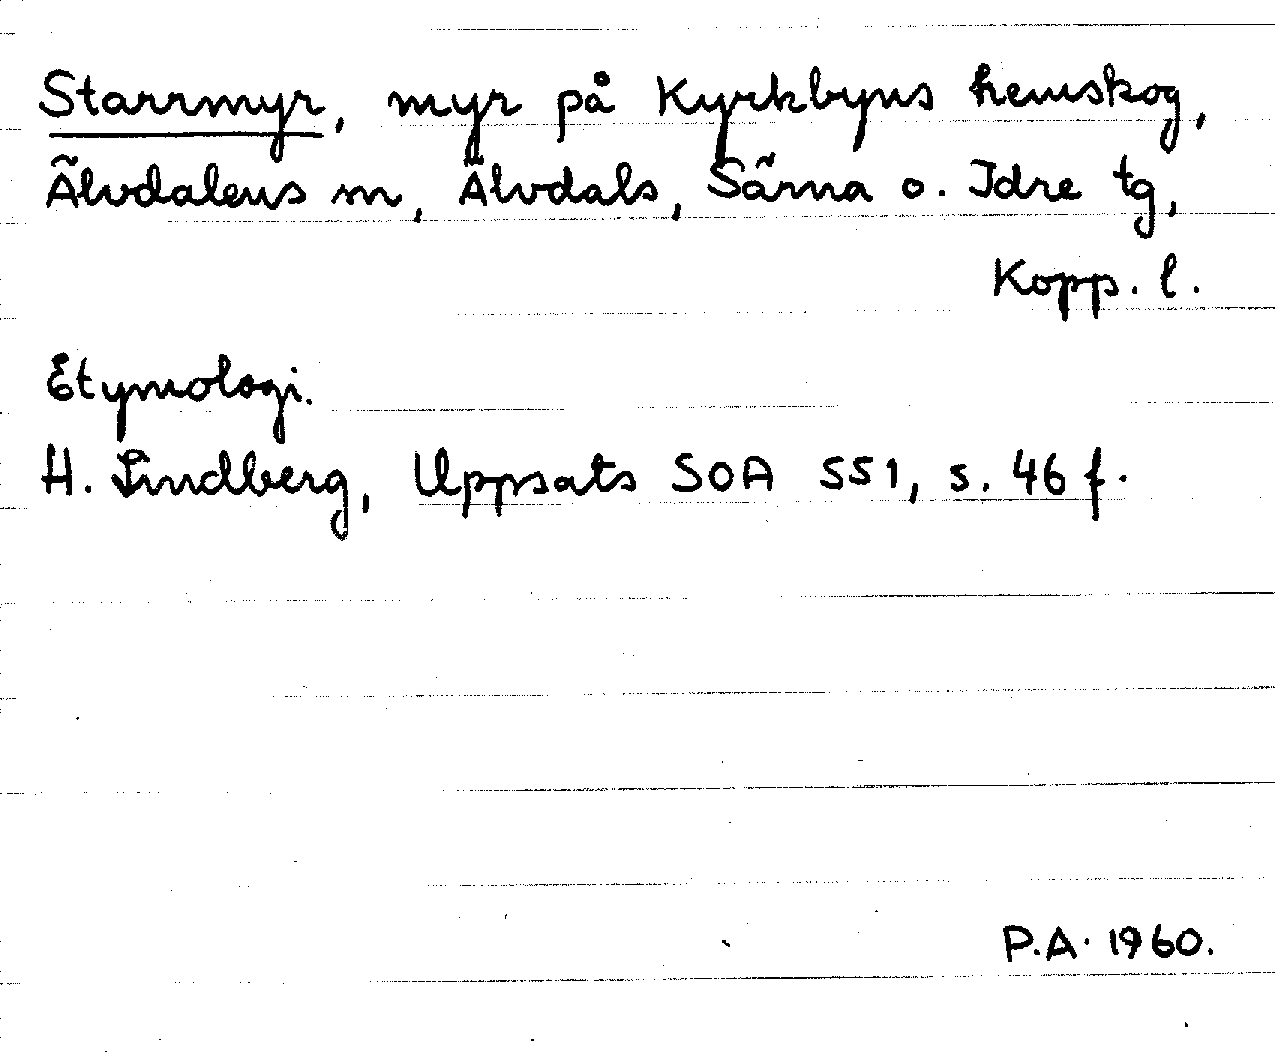 Starrmyr, myr på Kyrkbyns hemskog,
Älvdalens m, Älvdals, Särna o. Idre tg,
Kopp. l.
Etymologi.
H. Lindberg, Uppsats SOA 551, s. 46 f.
P.A. 1960.